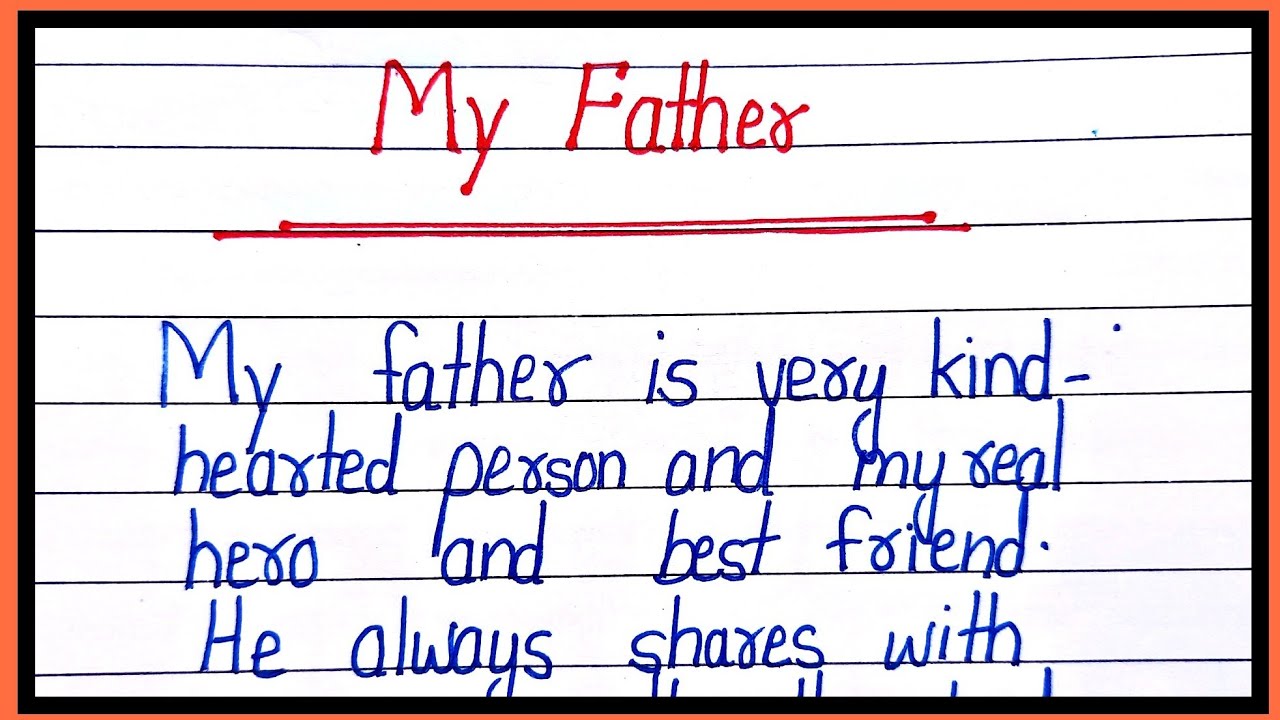 My Father
My father is very kind-
hearted person and my real
hero and best friend.
He always shares with